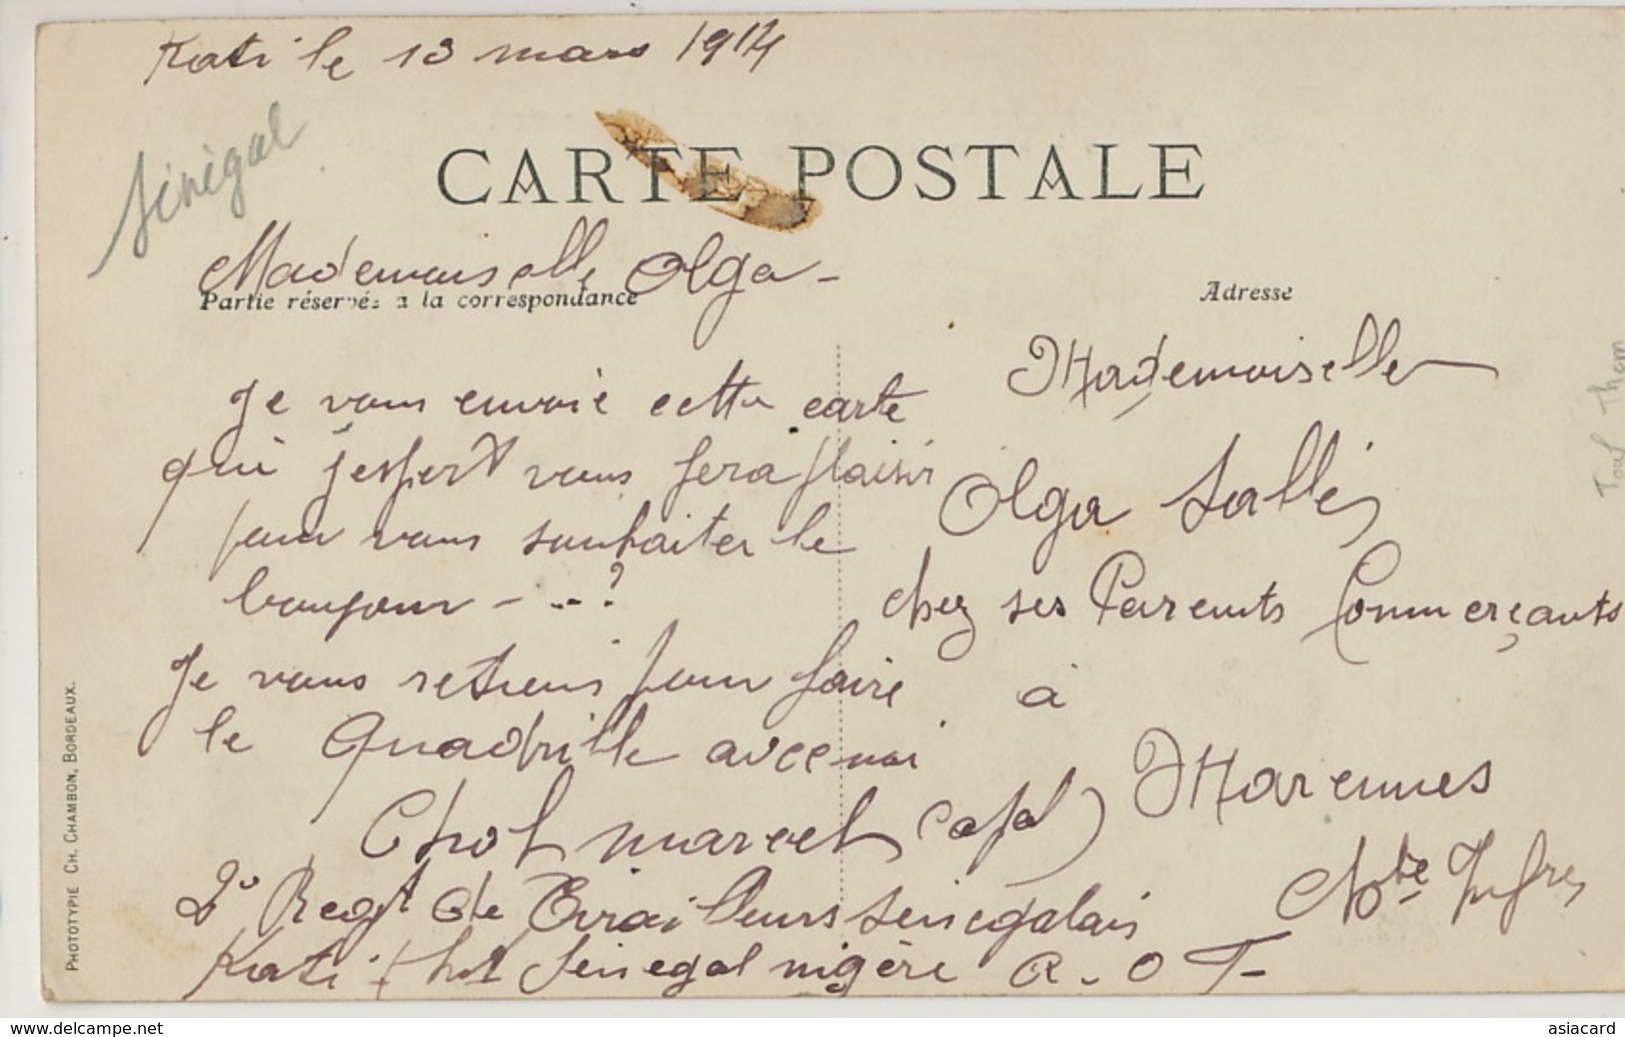 Kati le 13 mars 1914
Sénégal
CARTE POSTALE
Mademoiselle Olga -
Partie réservée a la correspondance
Je vous envoie cette carte
qui j'espert vous fera plaisir
pour vous souhaiter le
bonjour - ... ?
Je vous retiens pour faire
le Quadrille avec moi
Chol marcel Capal
2e Regt de Tirailleurs Senegalais
Kati ht Senegal nigère A. O F
Adresse
Mademoiselle
Olga Sallé
chez ses Parents Commerçants
à
Marennes
Ch te Infre
PHOTOTYPIE CH. CHAMBON, BORDEAUX.
www.delcampe.net
asiacard